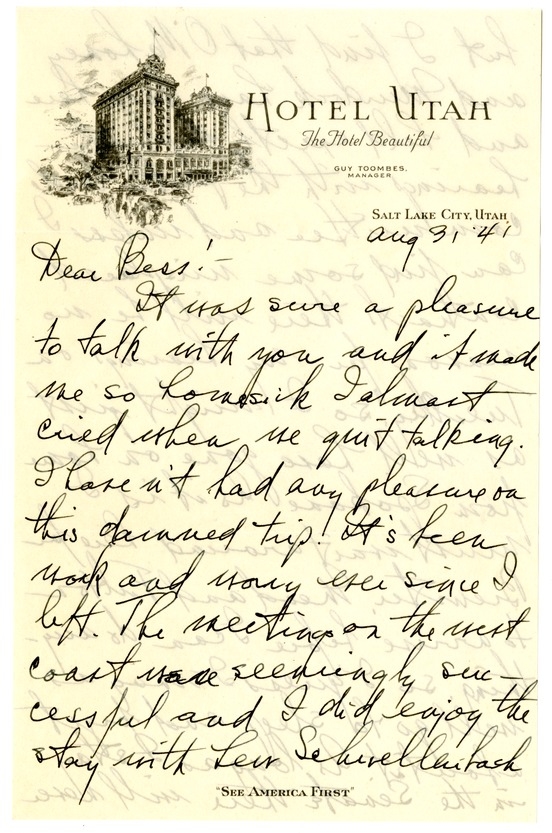 HOTEL UTAH
The Hotel Beautiful
GUY TOOMBES,
MANAGER
SALT LAKE CITY, UTAH
Aug 31 '41
Dear Bess:-
It was sure a pleasure
to talk with you and it made
me so homesick I almost
cried when we quit talking.
I haven't had any pleasure on
this damned trip! It's been
work and worry ever since I
left. The meetings on the west
coast were seemingly suc-
cessful and I did enjoy the
stay with Lew Schwellenbach
"SEE AMERICA FIRST"